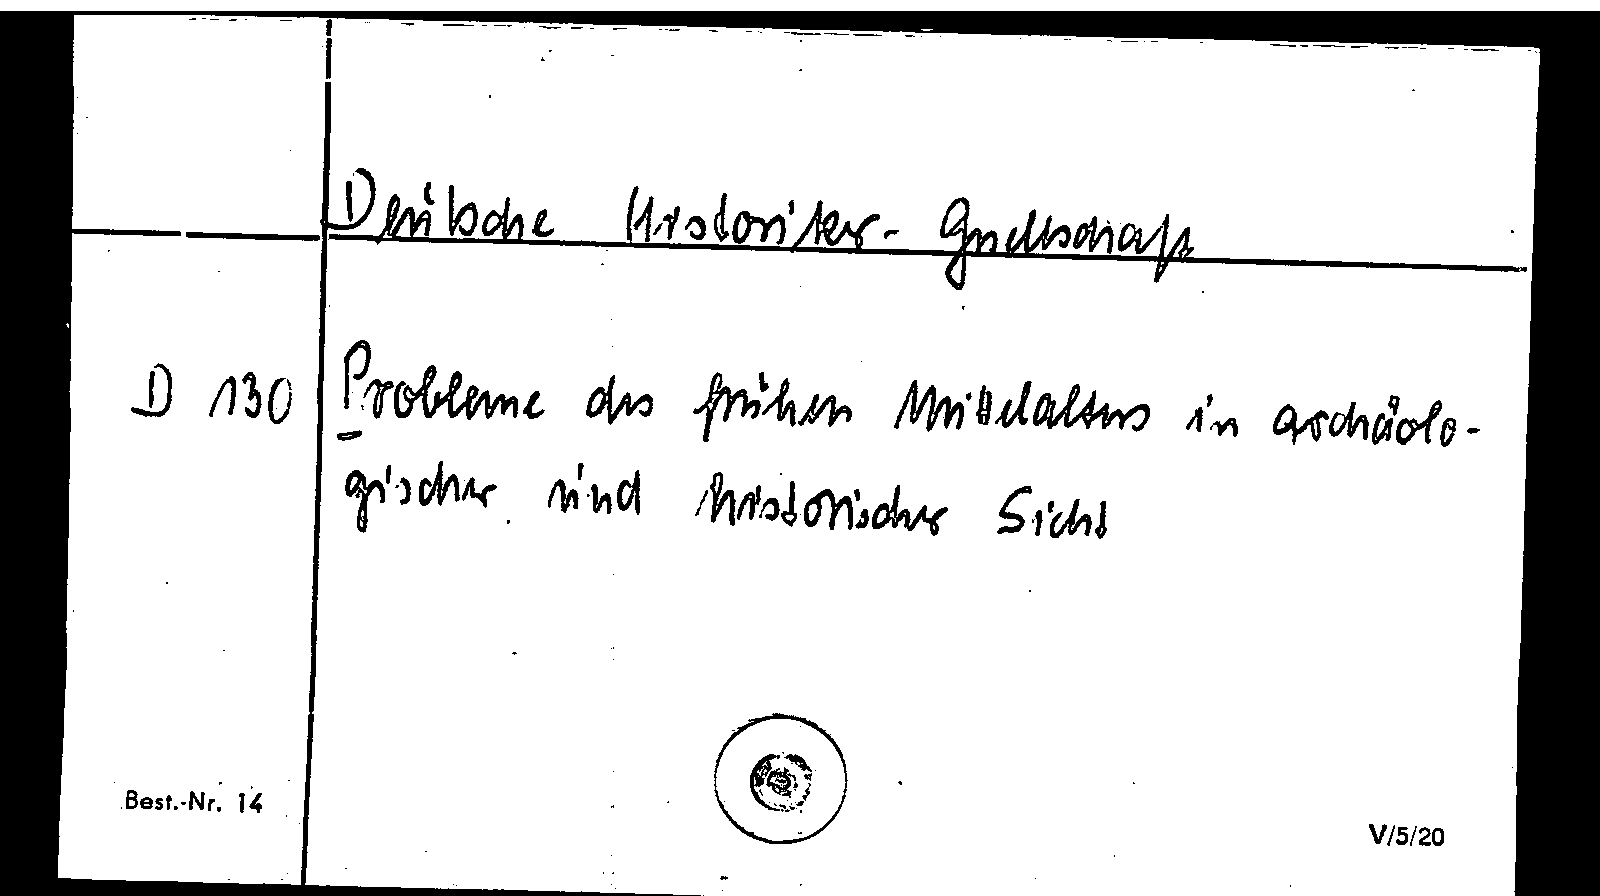 Deutsche Historiker-Gesellschaft
D 130 Probleme des frühen Mittelalters in archäolo-
gischer und historischer Sicht
Best.-Nr. 14
V/5/20